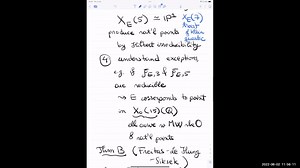 X_E(5) ≅ ℙ¹
X_E(7)
twist of Klein quartic
produce nat'l points
by Hilbert irreducibility
④ understand exceptions
e.g. if ρ̄_{E,3} & ρ̄_{E,5}
are reducible
⇝ E corresponds to point
in X₀(15)(ℚ)
ell. curve w MW rk 0
8 rat'l points
Thm B (Freitas - Le Hung
- Siksek)
2022-08-02 11:06:17